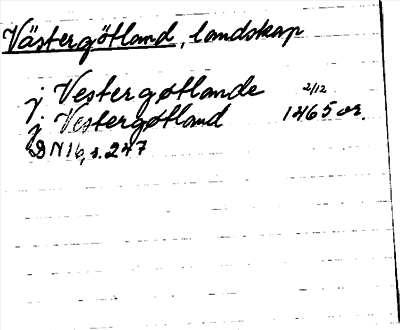 Västergötland, landskap
j Vestergøtlande 2/12
j Vestergøtland 1465 or.
DN 16, s. 247